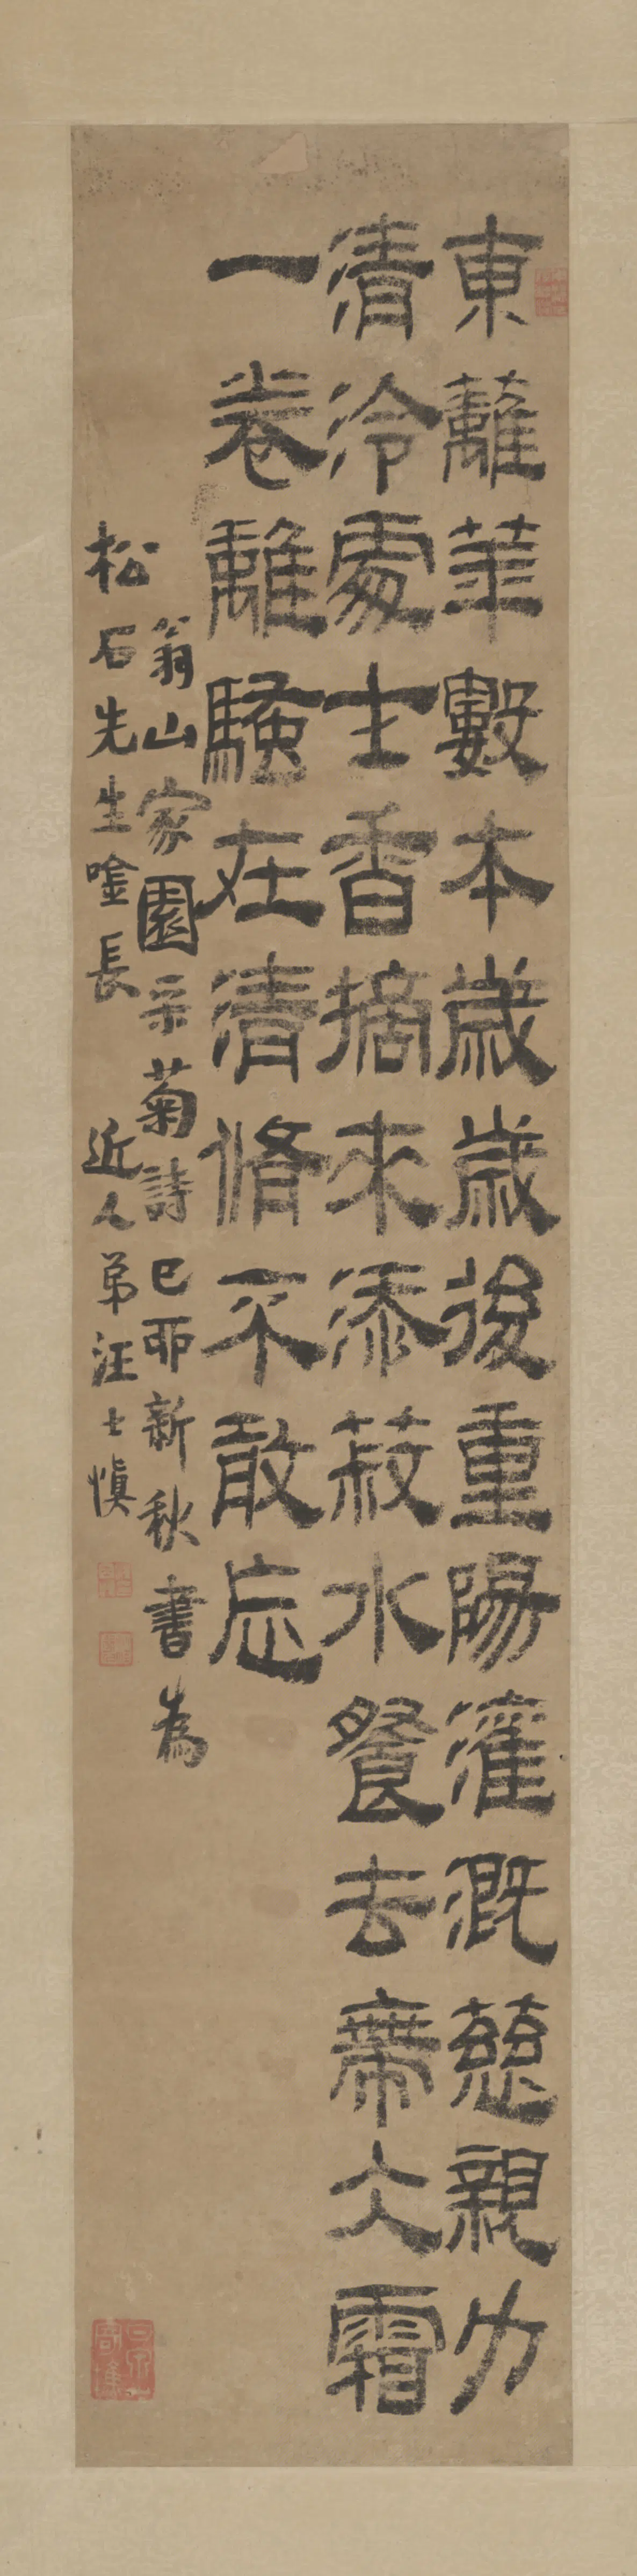 東籬華數本歲歲後重陽灌溉慈親力
清泠處士香摘來添菽水餐去薦大霜
一卷離騷在清脩不敢忘
翁山家園采菊詩己卯新秋書為
松石先生唫長 近人弟汪士慎